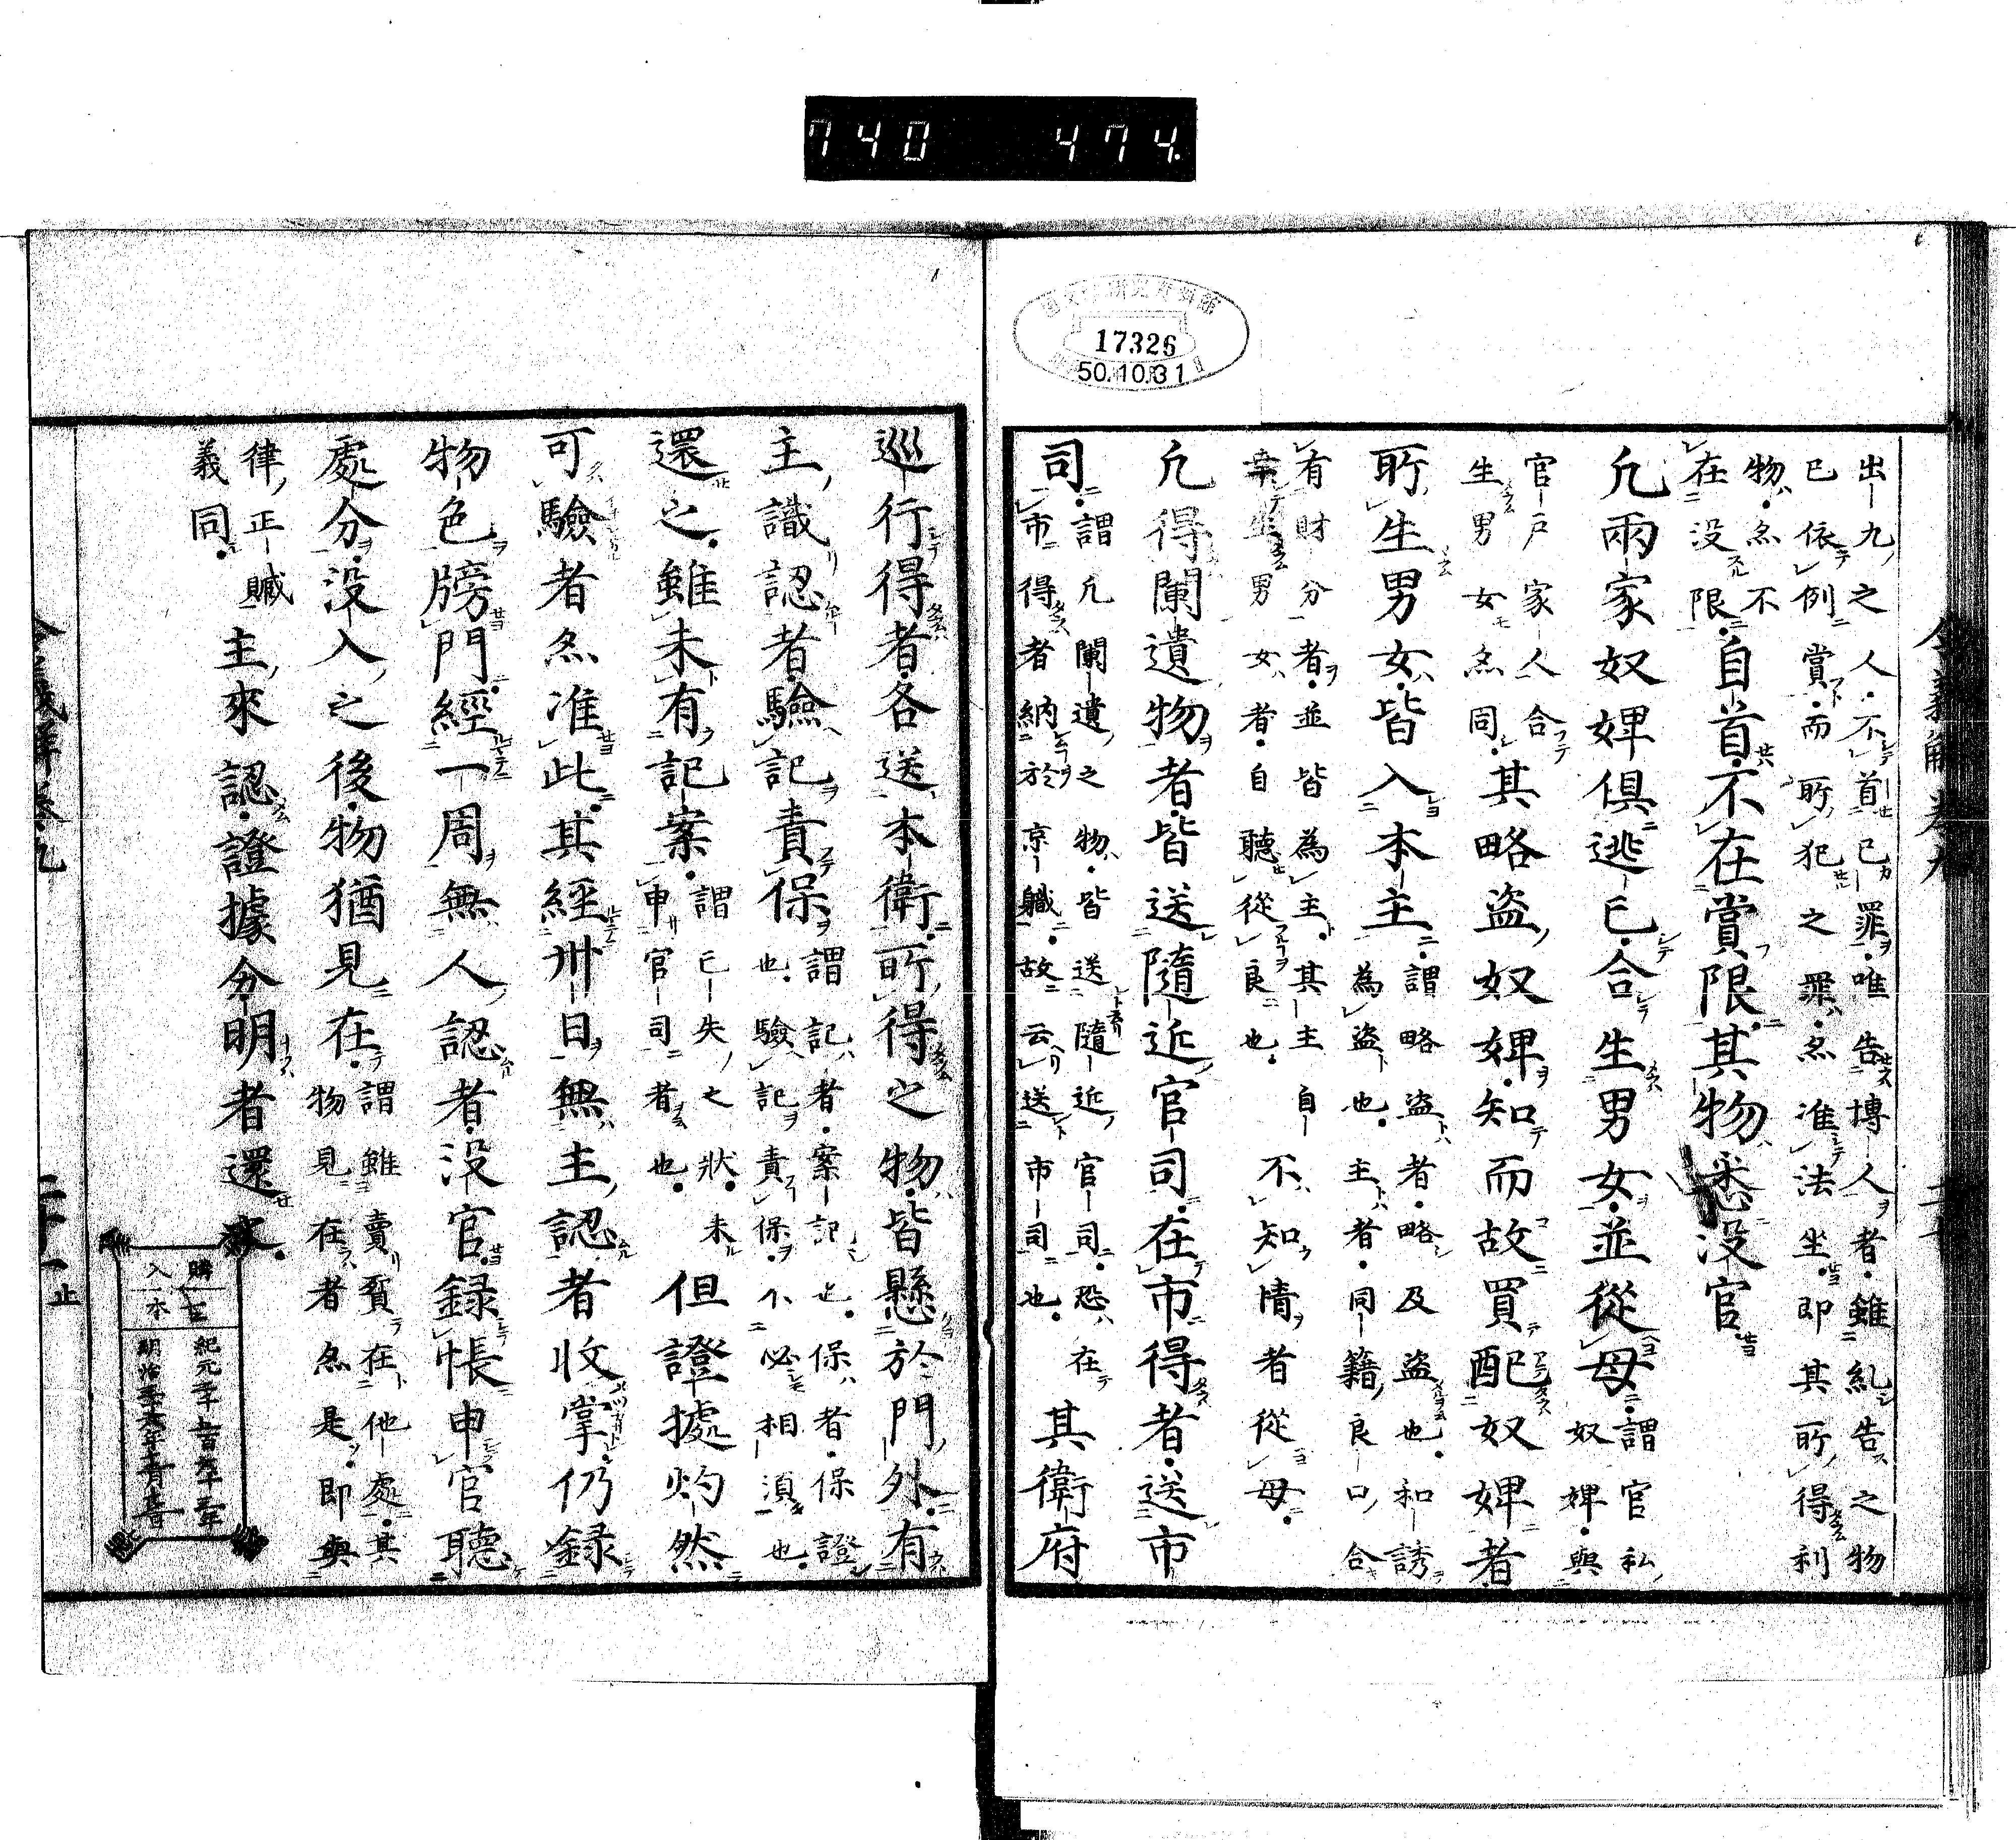 740 474
17326
50.10.31
出九之人不首已罪唯告博人者雖糺告之物
已依例賞而所犯之罪亦准法坐即其所得利
物亦不
在没限自首不在賞限其物悉没官
凡兩家奴婢俱逃亡合生男女並從母謂官私
奴婢與
官戶家人合
生男女亦同其略盗奴婢知而故買配奴婢者
所生男女皆入本主謂略盗者略及盗也和誘
為盗也主者同籍良口合
有財分者並皆為主其主自不知情者從母
棄生男女者自聽從良也
凡得闌遺物者皆送隨近官司在市得者送市
司謂凡闌遺之物皆送隨近官司恐在
市得者納於京職故云送市司也
其衛府
巡行得者各送本衛所得之物皆懸於門外有
主識認者驗記責保謂記者案記也保者保證
也驗記責保不必相須也
還之雖未有記案謂亡失之狀未
申官司者也
但證據灼然
可驗者亦准此其經卅日無主認者收掌仍録
物色牓門經一周無人認者没官録帳申官聽
處分没入之後物猶見在謂雖賣買在他處其
物見在者亦是即與
律正贓
義同
主來認證據分明者還
令義解卷九
二十一止
購入本